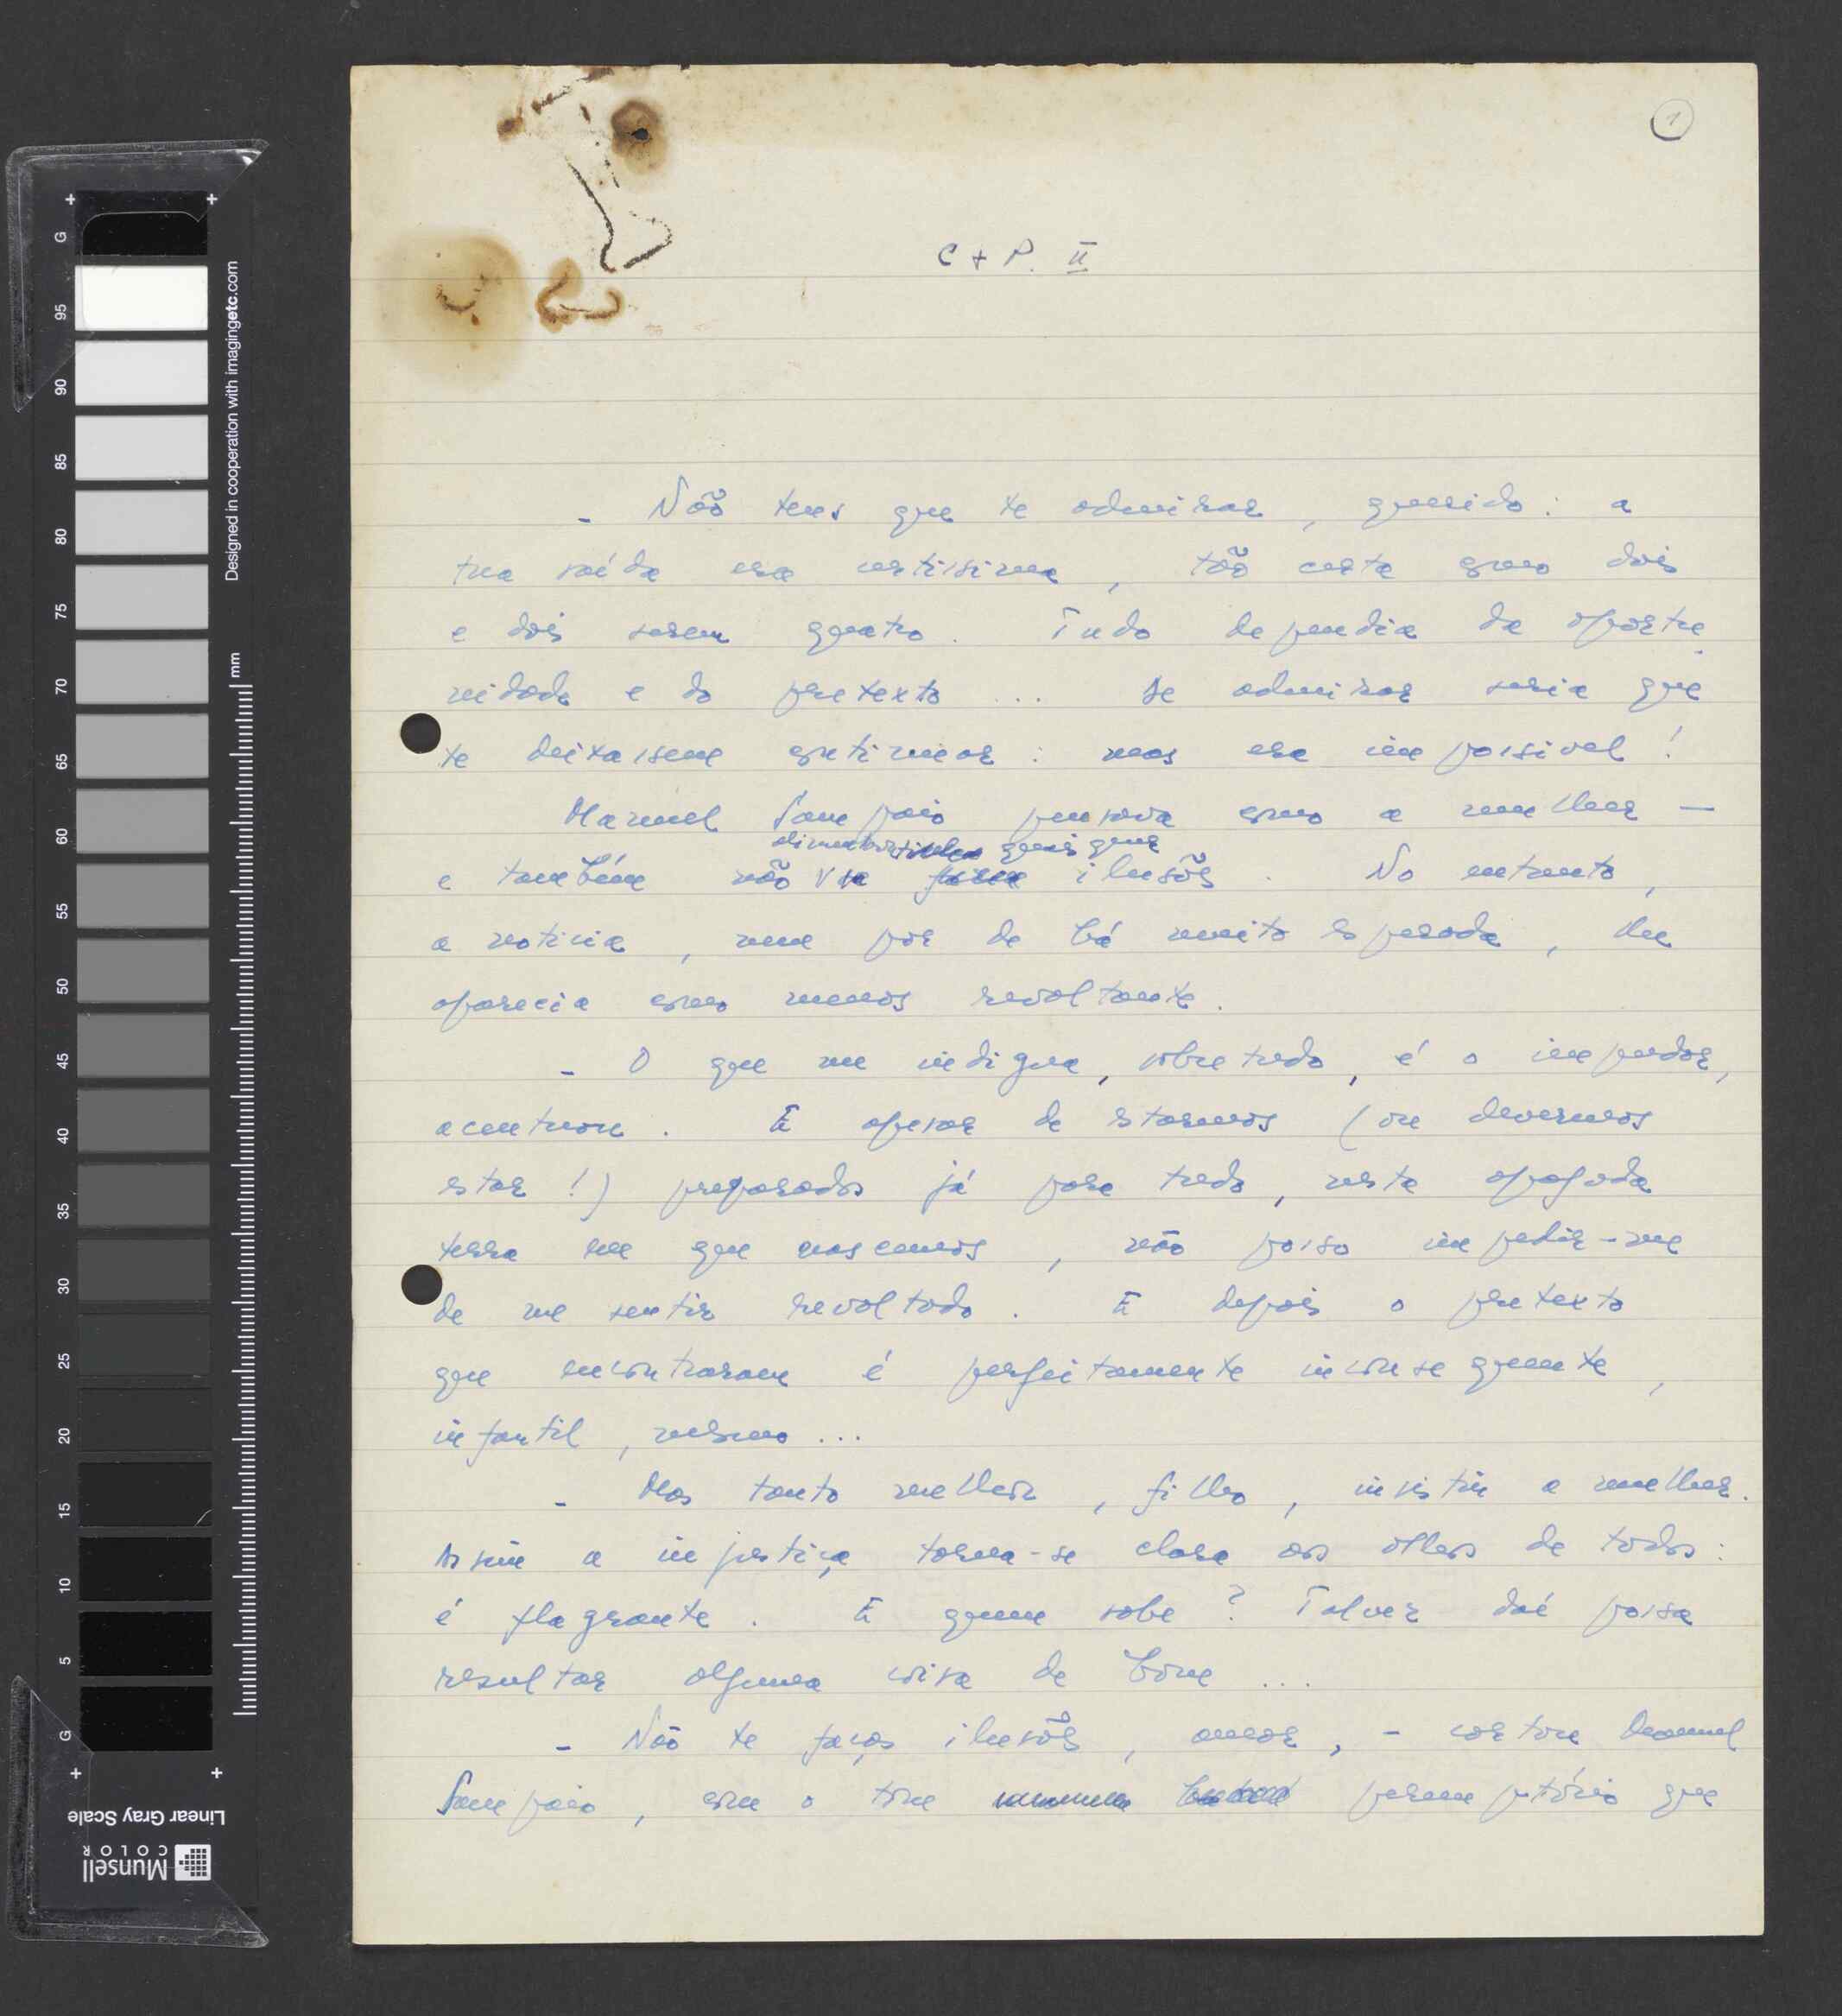 1
C + P. II
- Não tens que te admirar, querido: a
tua saída era certíssima, tão certa como dois
e dois serem quatro. Tudo dependia da oportu-
nidade e do pretexto... De admirar seria que
te deixassem continuar: mas era impossível!
Manuel Sampaio pensava como a mulher —
alimentar quaisquer
e também não ilusões. No entanto,
a notícia, nem por de há muito esperada, lhe
aparecia como menos revoltante.
- O que me indigna, sobretudo, é o impudor,
acentuou. E apesar de estarmos (ou devermos
estar!) preparados já para tudo, nesta apagada
terra em que nascemos, não posso impedir-me
de me sentir revoltado. E depois o pretexto
que encontraram é perfeitamente inconsequente,
infantil, mesmo...
- Mas tanto melhor, filho, insistiu a mulher.
Assim a injustiça torna-se clara aos olhos de todos:
é flagrante. E quem sabe? Talvez daí possa
resultar alguma coisa de bom...
- Não te faças ilusões, amor, - cortou Manuel
Sampaio, com o tom peremptório que
G
95
90
85
80
75
70
65
60
55
50
45
40
35
30
25
20
15
10
5
G
Designed in cooperation with imagingetc.com
mm
Linear Gray Scale
Munsell
COLOR